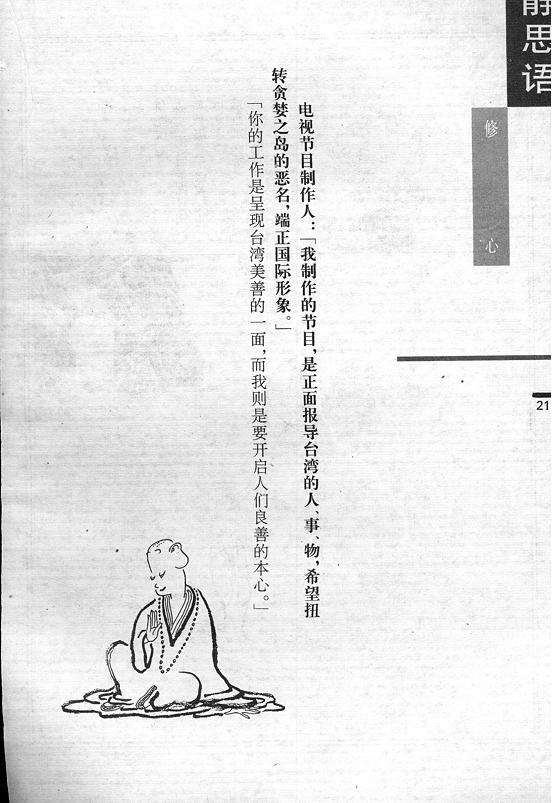 静思语
修心
21
电视节目制作人：「我制作的节目，是正面报导台湾的人、事、物，希望扭
转贪婪之岛的恶名，端正国际形象。」
「你的工作是呈现台湾美善的一面，而我则是要开启人们良善的本心。」